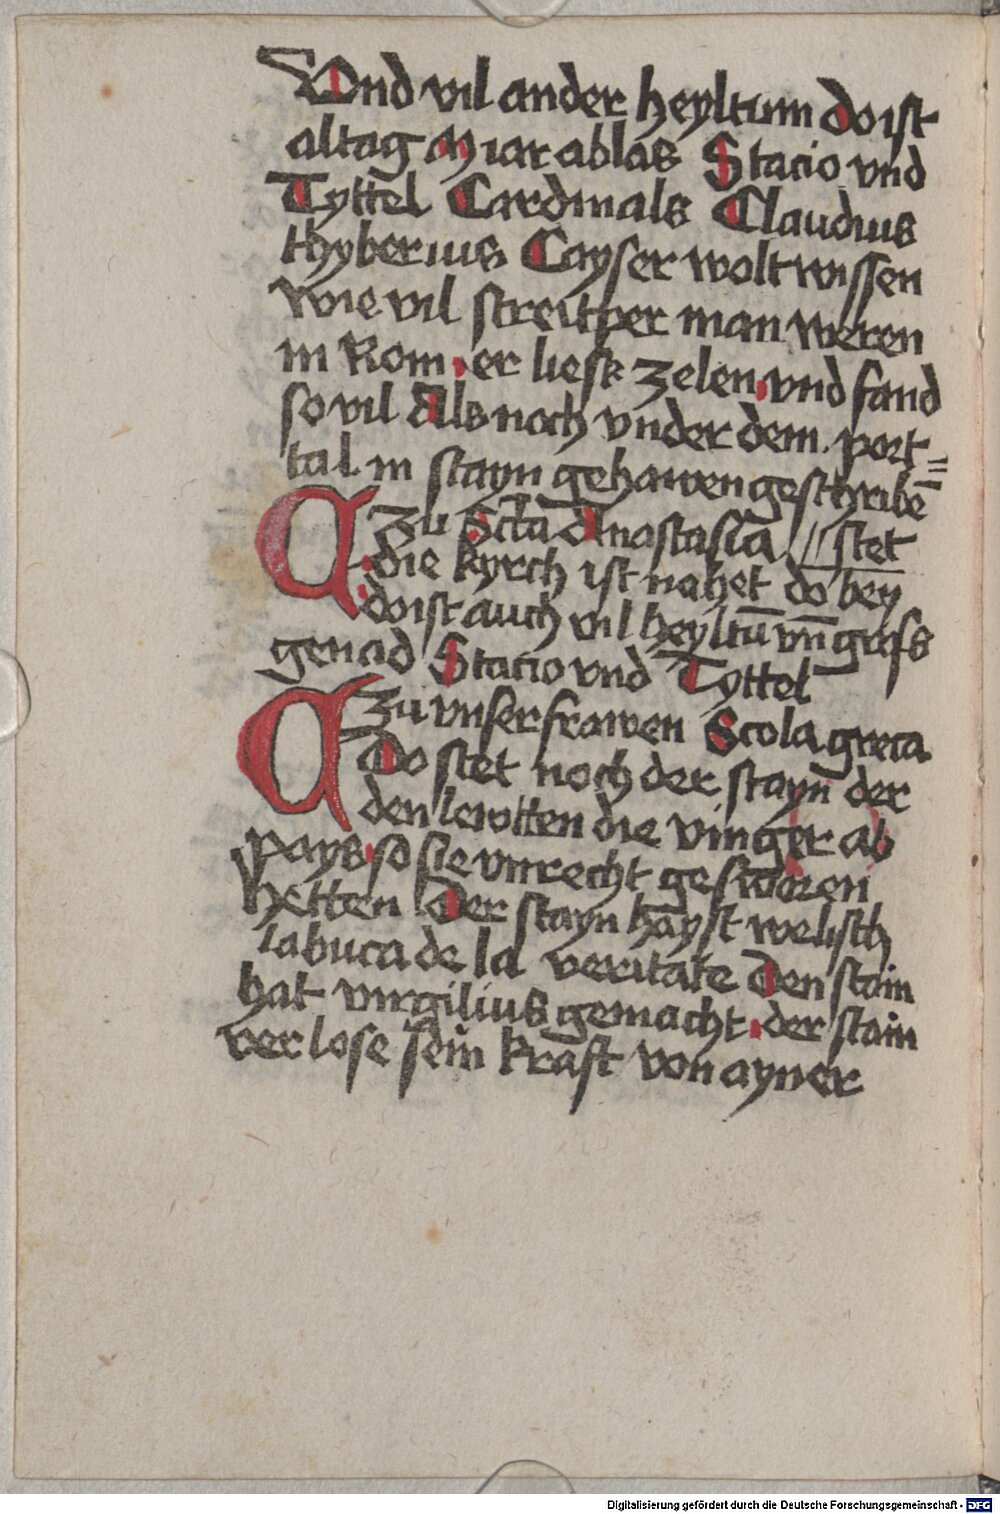 Vnd vil ander heyltum do ist
altag M iar ablas Stacio vnd
Tyttel Cardinals Claudius
thyberius Cayser wolt wissen
wie vil streitper man weren
in Rom. er liesk zelen. vnd fand
so vil Als noch vnder dem port=
tal in stayn gehawen geschribē
Zu Sctā Anastasia // stet
die kyrch ist nahet do bey
do ist auch vil heyltū vn̄ gross
genad Stacio vnd Tyttel
Zu vnser frawen Scola greca
Do stet noch der stayn der
den lewtten die vinger ab
pays. so sie vnrecht gesworen
hetten Der stayn hayst welisch
la buca de la veritate Den stain
hat virgilius gemacht. der stain
verlose sein kraft von ayner
Digitalisierung gefördert durch die Deutsche Forschungsgemeinschaft - DFG